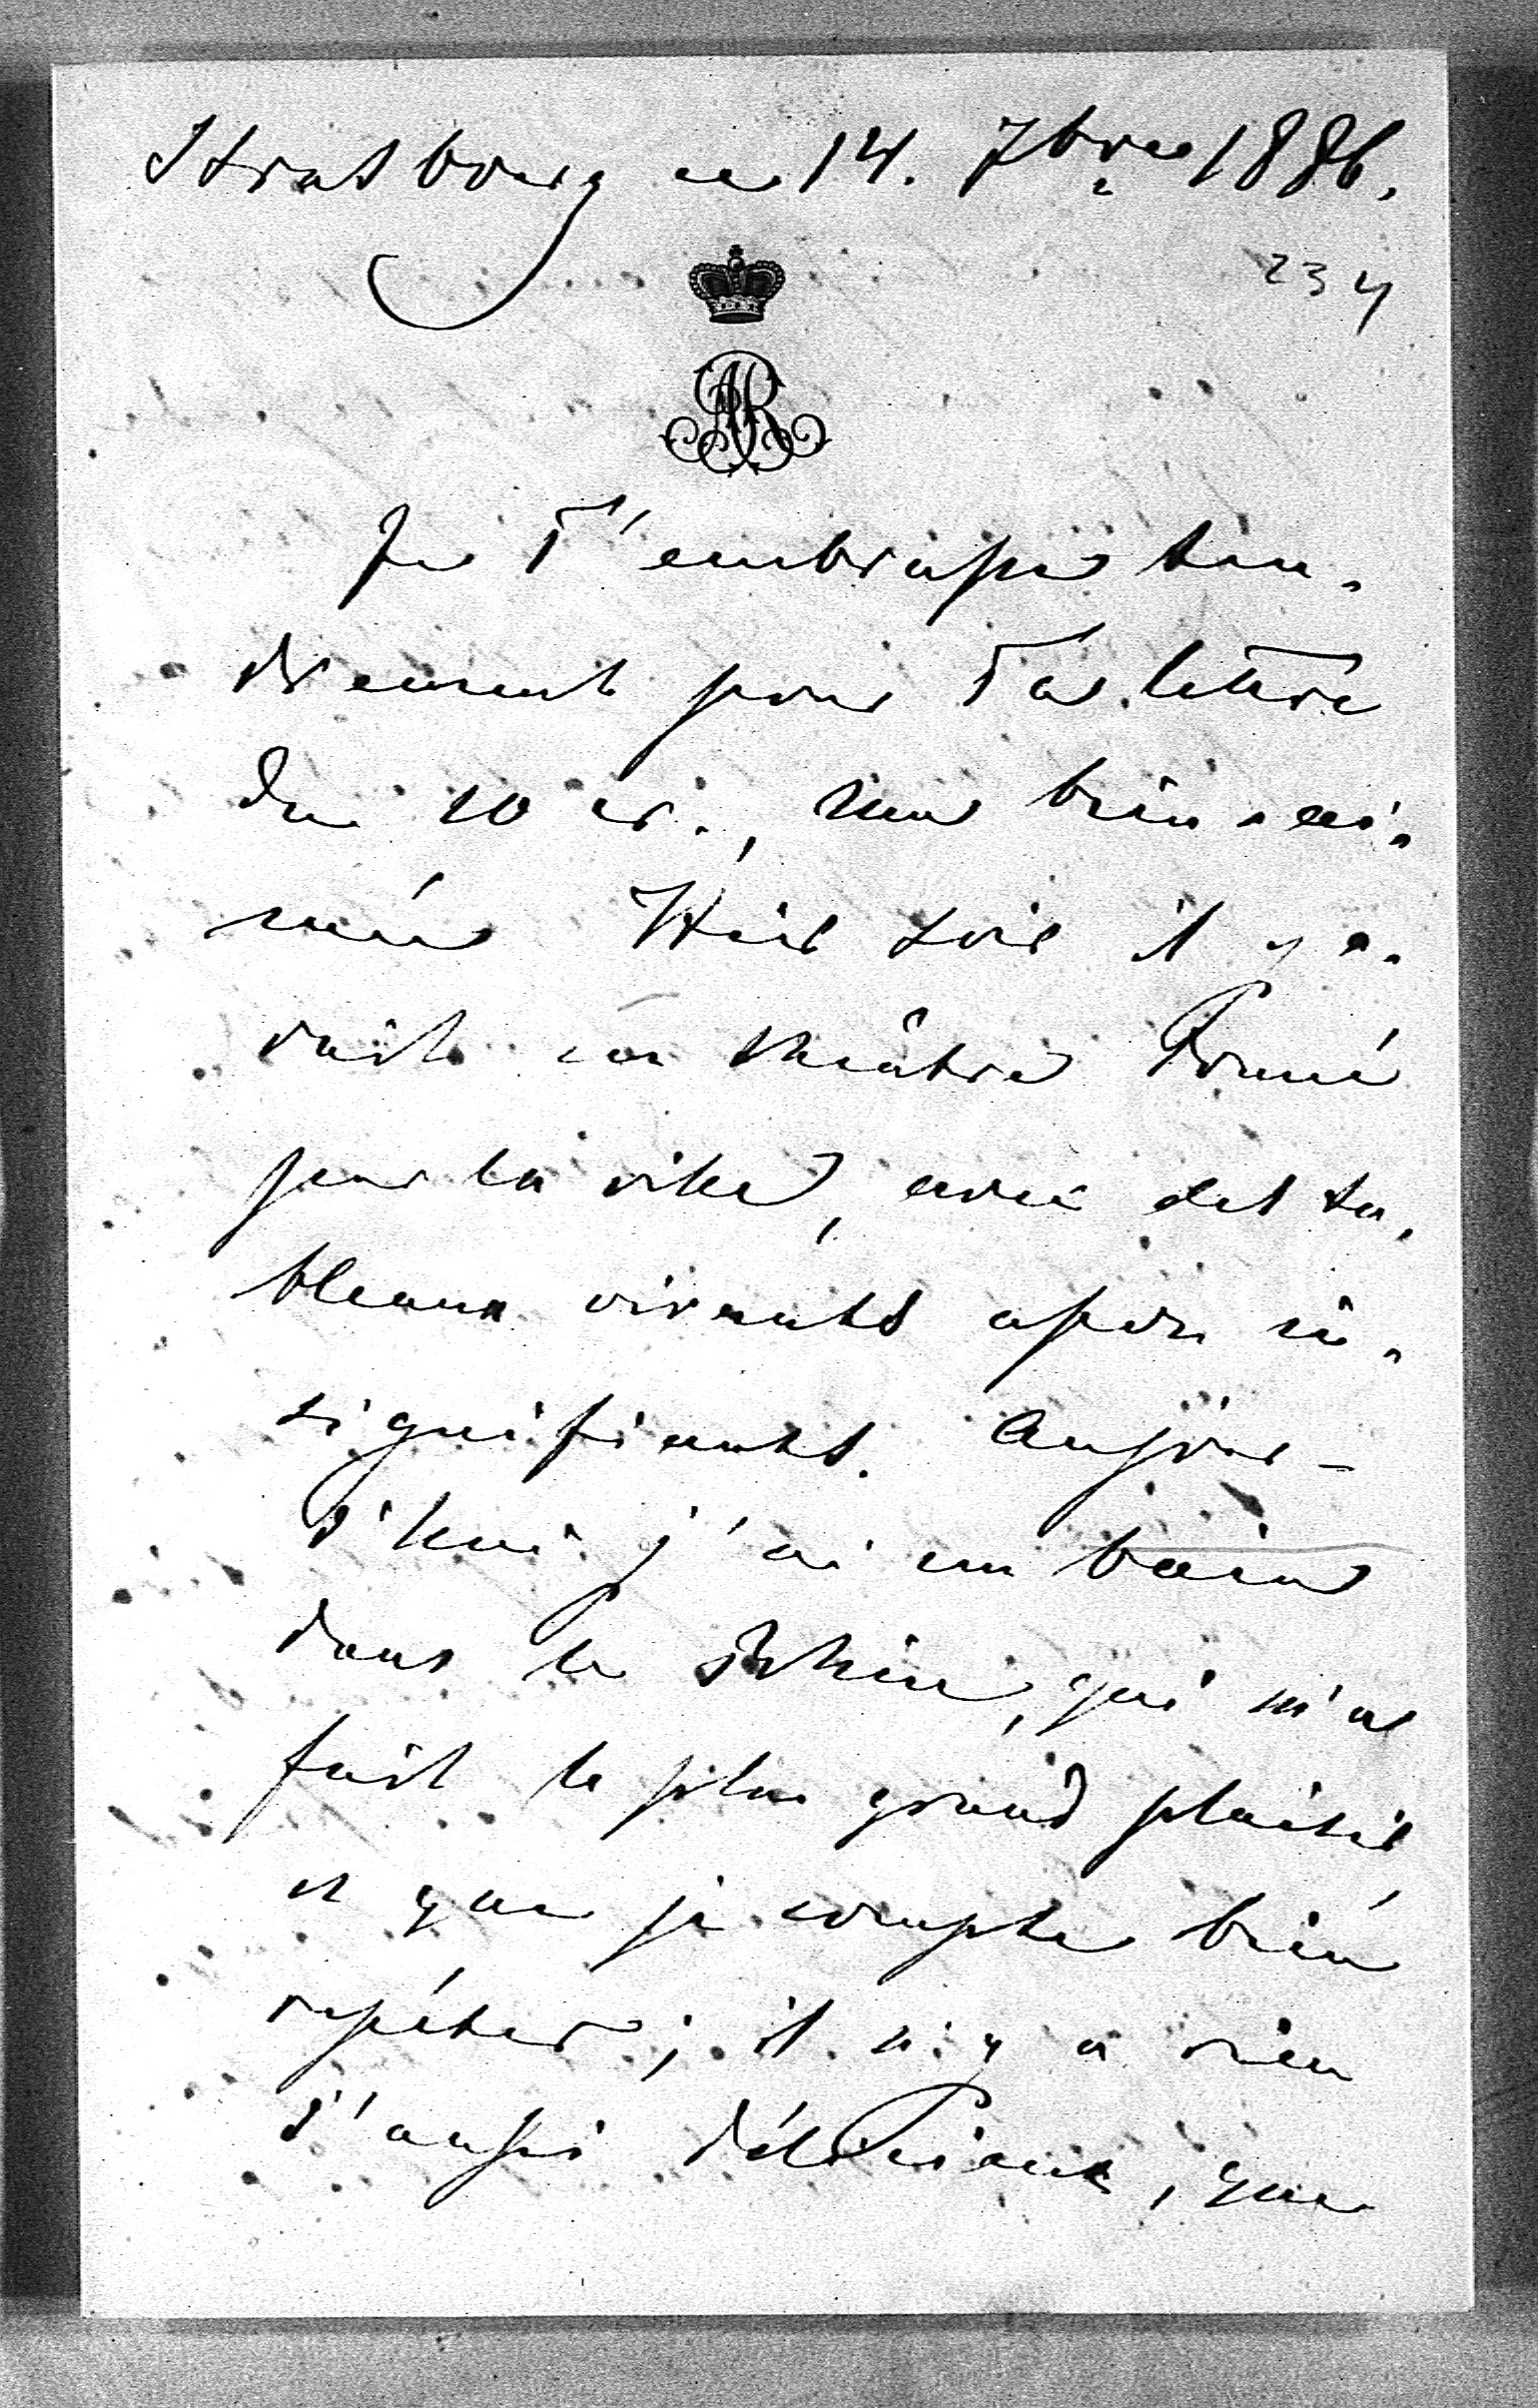 Strasbourg ce 14. 7bre 1886.
234
AR
Je T'embrasse ten-
drement pour Ta lettre
du 10 cr., ma bien-ai-
mée Hier soir il y a-
vait un théâtre donné
par la ville, avec des ta-
bleaux vivants assez in-
signifiants. Aujour-
d'hui j'ai un bain
dans le Rhin, qui m'a
fait le plus grand plaisir
et que je compte bien
repéter; il n'y a rien
d'aussi délicieux, que